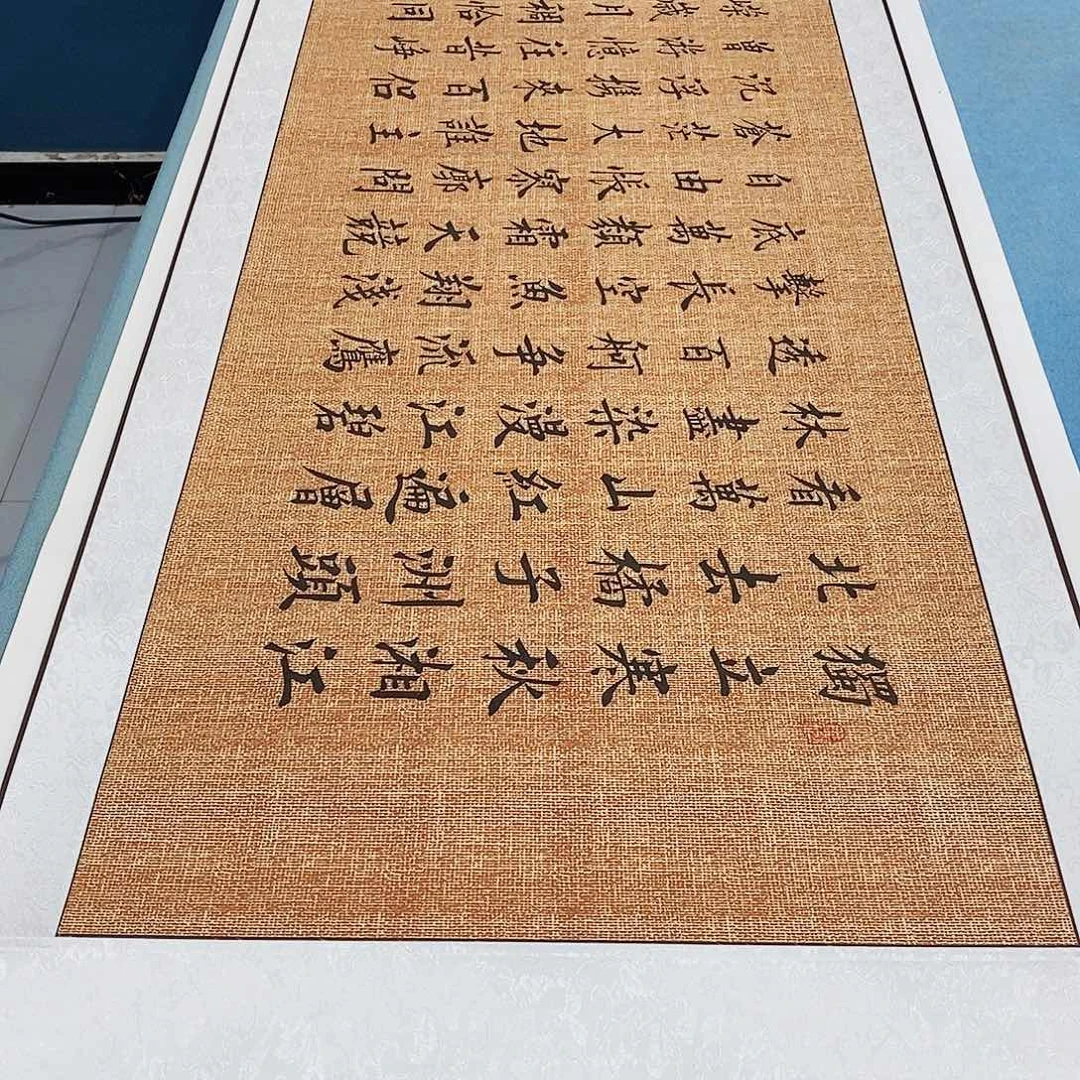 獨立寒秋湘江
北去橘子洲頭
看萬山紅遍層
林盡染漫江碧
透百舸争流鷹
擊長空魚翔淺
底萬類霜天競
自由悵寥廓問
蒼茫大地誰主
沉浮攜來百侣
曾游憶往昔崢
嶸歲月稠恰同